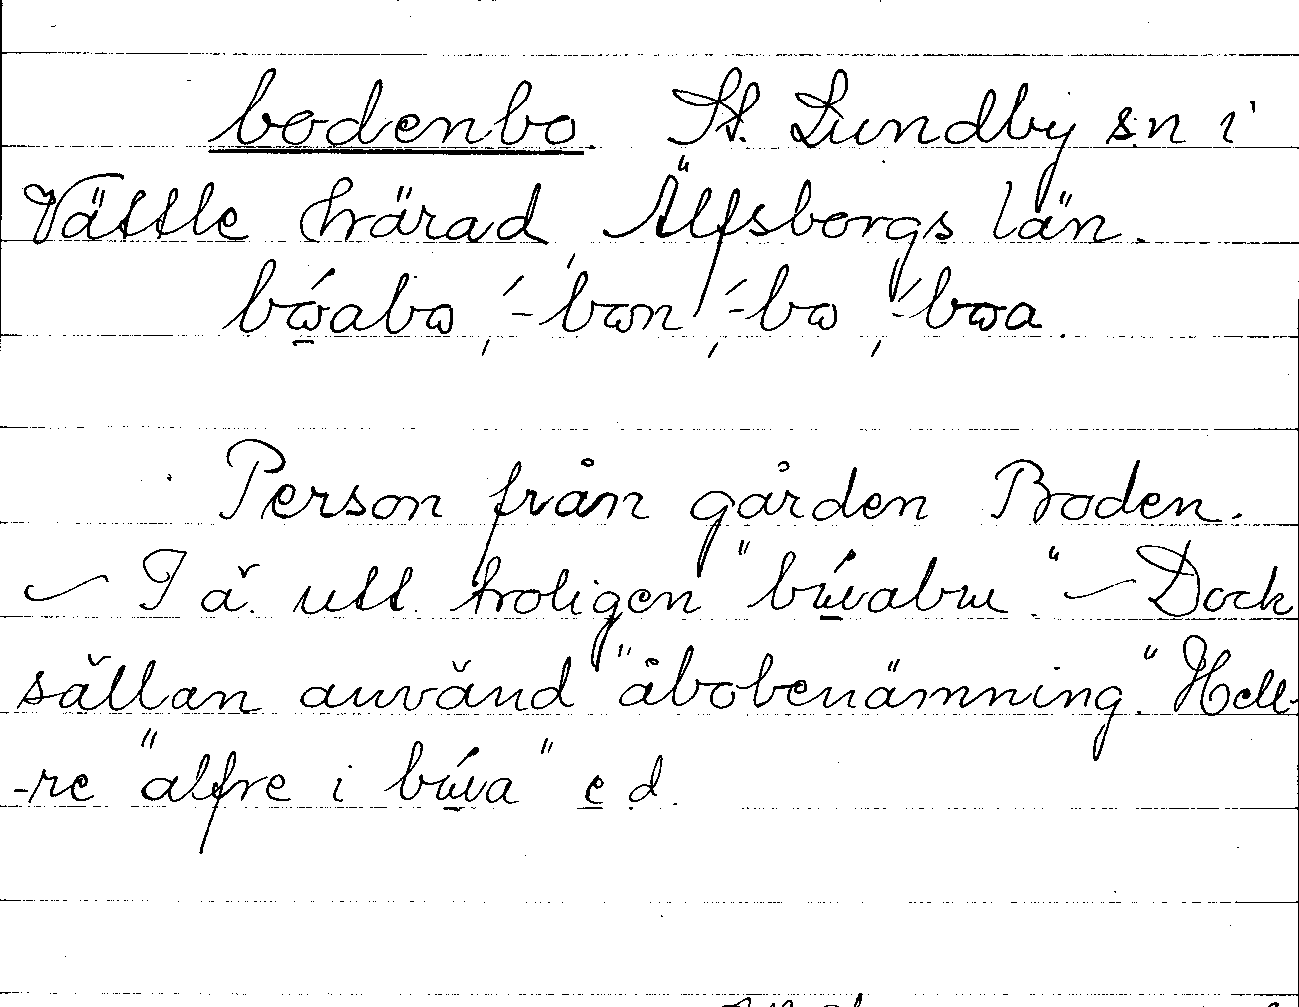 bodenbo. St. Lundby s.n i
Vättle härad, Älfsborgs län.
bώabω, ´-bωn, ´-bω, ´-bωa.
Person från gården Boden.
— I ä. utt. troligen "búvabu". — Dock
sällan använd "åbobenämning". Hell-
-re "alfre i búva" e d.